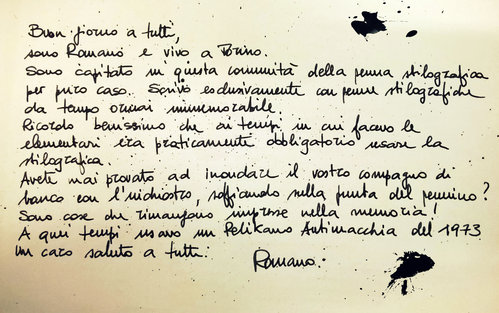 Buon giorno a tutti,
sono Romano e vivo a Torino.
Sono capitato in questa comunità della penna stilografica
per puro caso. Scrivo esclusivamente con penne stilografiche
da tempo ormai immemorabile.
Ricordo benissimo che ai tempi in cui facevo le
elementari era praticamente obbligatorio usare la
stilografica.
Avete mai provato ad inondare il vostro compagno di
banco con l'inchiostro, soffiando sulla punta del pennino?
Sono cose che rimangono impresse nella memoria!
A quei tempi usavo un Pelikano Antimacchia del 1973
Un caro saluto a tutti.
Romano.